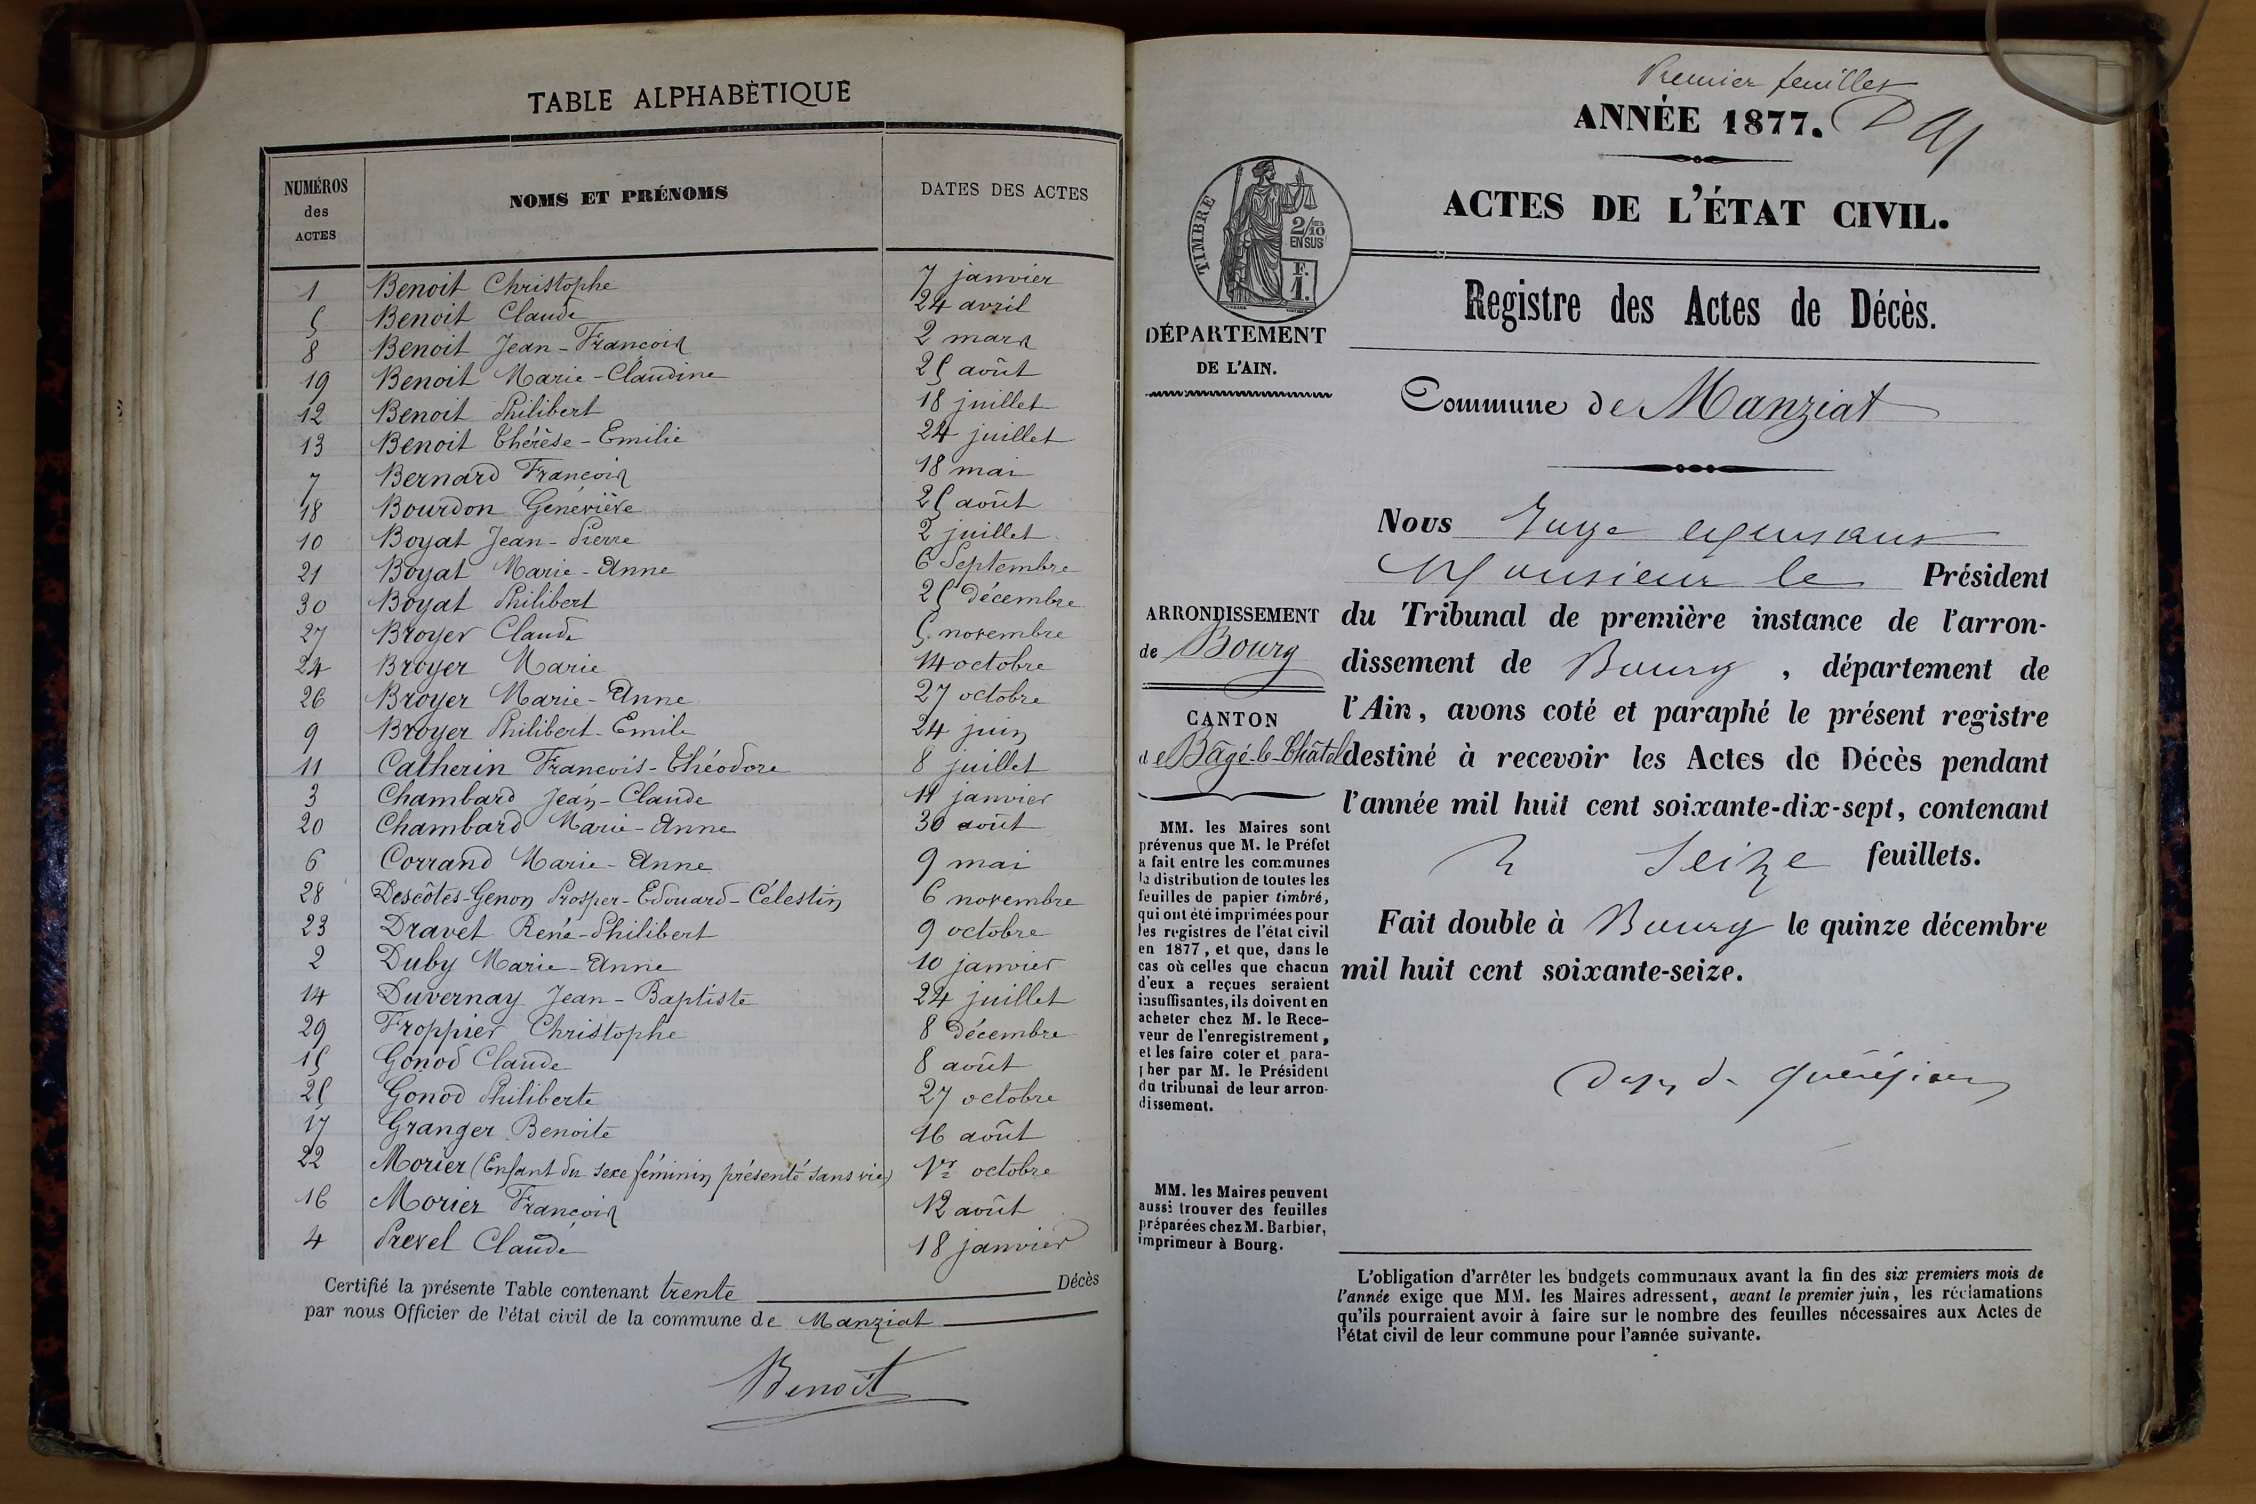 TABLE ALPHABÉTIQUE
NUMÉROS des ACTES NOMS ET PRÉNOMS DATES DES ACTES
1 Benoit Christophe 7 janvier
5 Benoit Claude 24 avril
8 Benoit Jean-François 2 mars
19 Benoit Marie-Claudine 25 août
12 Benoit Philibert 18 juillet
13 Benoit Thérèse-Emilie 24 juillet
7 Bernard François 18 mai
18 Bourdon Geneviève 25 août
10 Boyat Jean-Pierre 2 juillet
21 Boyat Marie-Anne 6 Septembre
30 Boyat Philibert 25 décembre
27 Broyer Claude 5 novembre
24 Broyer Marie 14 octobre
26 Broyer Marie-Anne 27 octobre
9 Broyer Philibert-Emile 24 juin
11 Catherin François-Théodore 8 juillet
3 Chambard Jean-Claude 11 janvier
20 Chambard Marie-Anne 30 août
6 Corrand Marie-Anne 9 mai
28 Descôtes-Genon Prosper-Edouard-Célestin 6 novembre
23 Dravet René-Philibert 9 octobre
2 Duby Marie-Anne 10 janvier
14 Duvernay Jean-Baptiste 24 juillet
29 Froppier Christophe 8 décembre
15 Gonod Claude 8 août
25 Gonod Philiberte 27 octobre
17 Granger Benoite 16 août
22 Morier (Enfant du sexe féminin présenté sans vie) 1er octobre
16 Morier François 12 août
4 Prevel Claude 18 janvier
Certifié la présente Table contenant trente Décès
par nous Officier de l'état civil de la commune de Manziat
Benoit
Premier feuillet
ANNÉE 1877.
ACTES DE L'ÉTAT CIVIL.
TIMBRE
2/10 EN SUS
F. 1.
DÉPARTEMENT
DE L'AIN.
Registre des Actes de Décès.
Commune de Manziat
ARRONDISSEMENT
de Bourg
CANTON
de Bâgé-le-Châtel
MM. les Maires sont
prévenus que M. le Préfet
a fait entre les communes
la distribution de toutes les
feuilles de papier timbré,
qui ont été imprimées pour
les registres de l'état civil
en 1877, et que, dans le
cas où celles que chacun
d'eux a reçues seraient
insuffisantes, ils doivent en
acheter chez M. le Rece-
veur de l'enregistrement,
et les faire coter et para-
pher par M. le Président
du tribunal de leur arron-
dissement.
MM. les Maires peuvent
aussi trouver des feuilles
préparées chez M. Barbier,
imprimeur à Bourg.
Nous Juge
Monsieur le Président
du Tribunal de première instance de l'arron-
dissement de Bourg, département de
l'Ain, avons coté et paraphé le présent registre
destiné à recevoir les Actes de Décès pendant
l'année mil huit cent soixante-dix-sept, contenant
Seize feuillets.
Fait double à Bourg le quinze décembre
mil huit cent soixante-seize.
L'obligation d'arrêter les budgets communaux avant la fin des six premiers mois de
l'année exige que MM. les Maires adressent, avant le premier juin, les réclamations
qu'ils pourraient avoir à faire sur le nombre des feuilles nécessaires aux Actes de
l'état civil de leur commune pour l'année suivante.